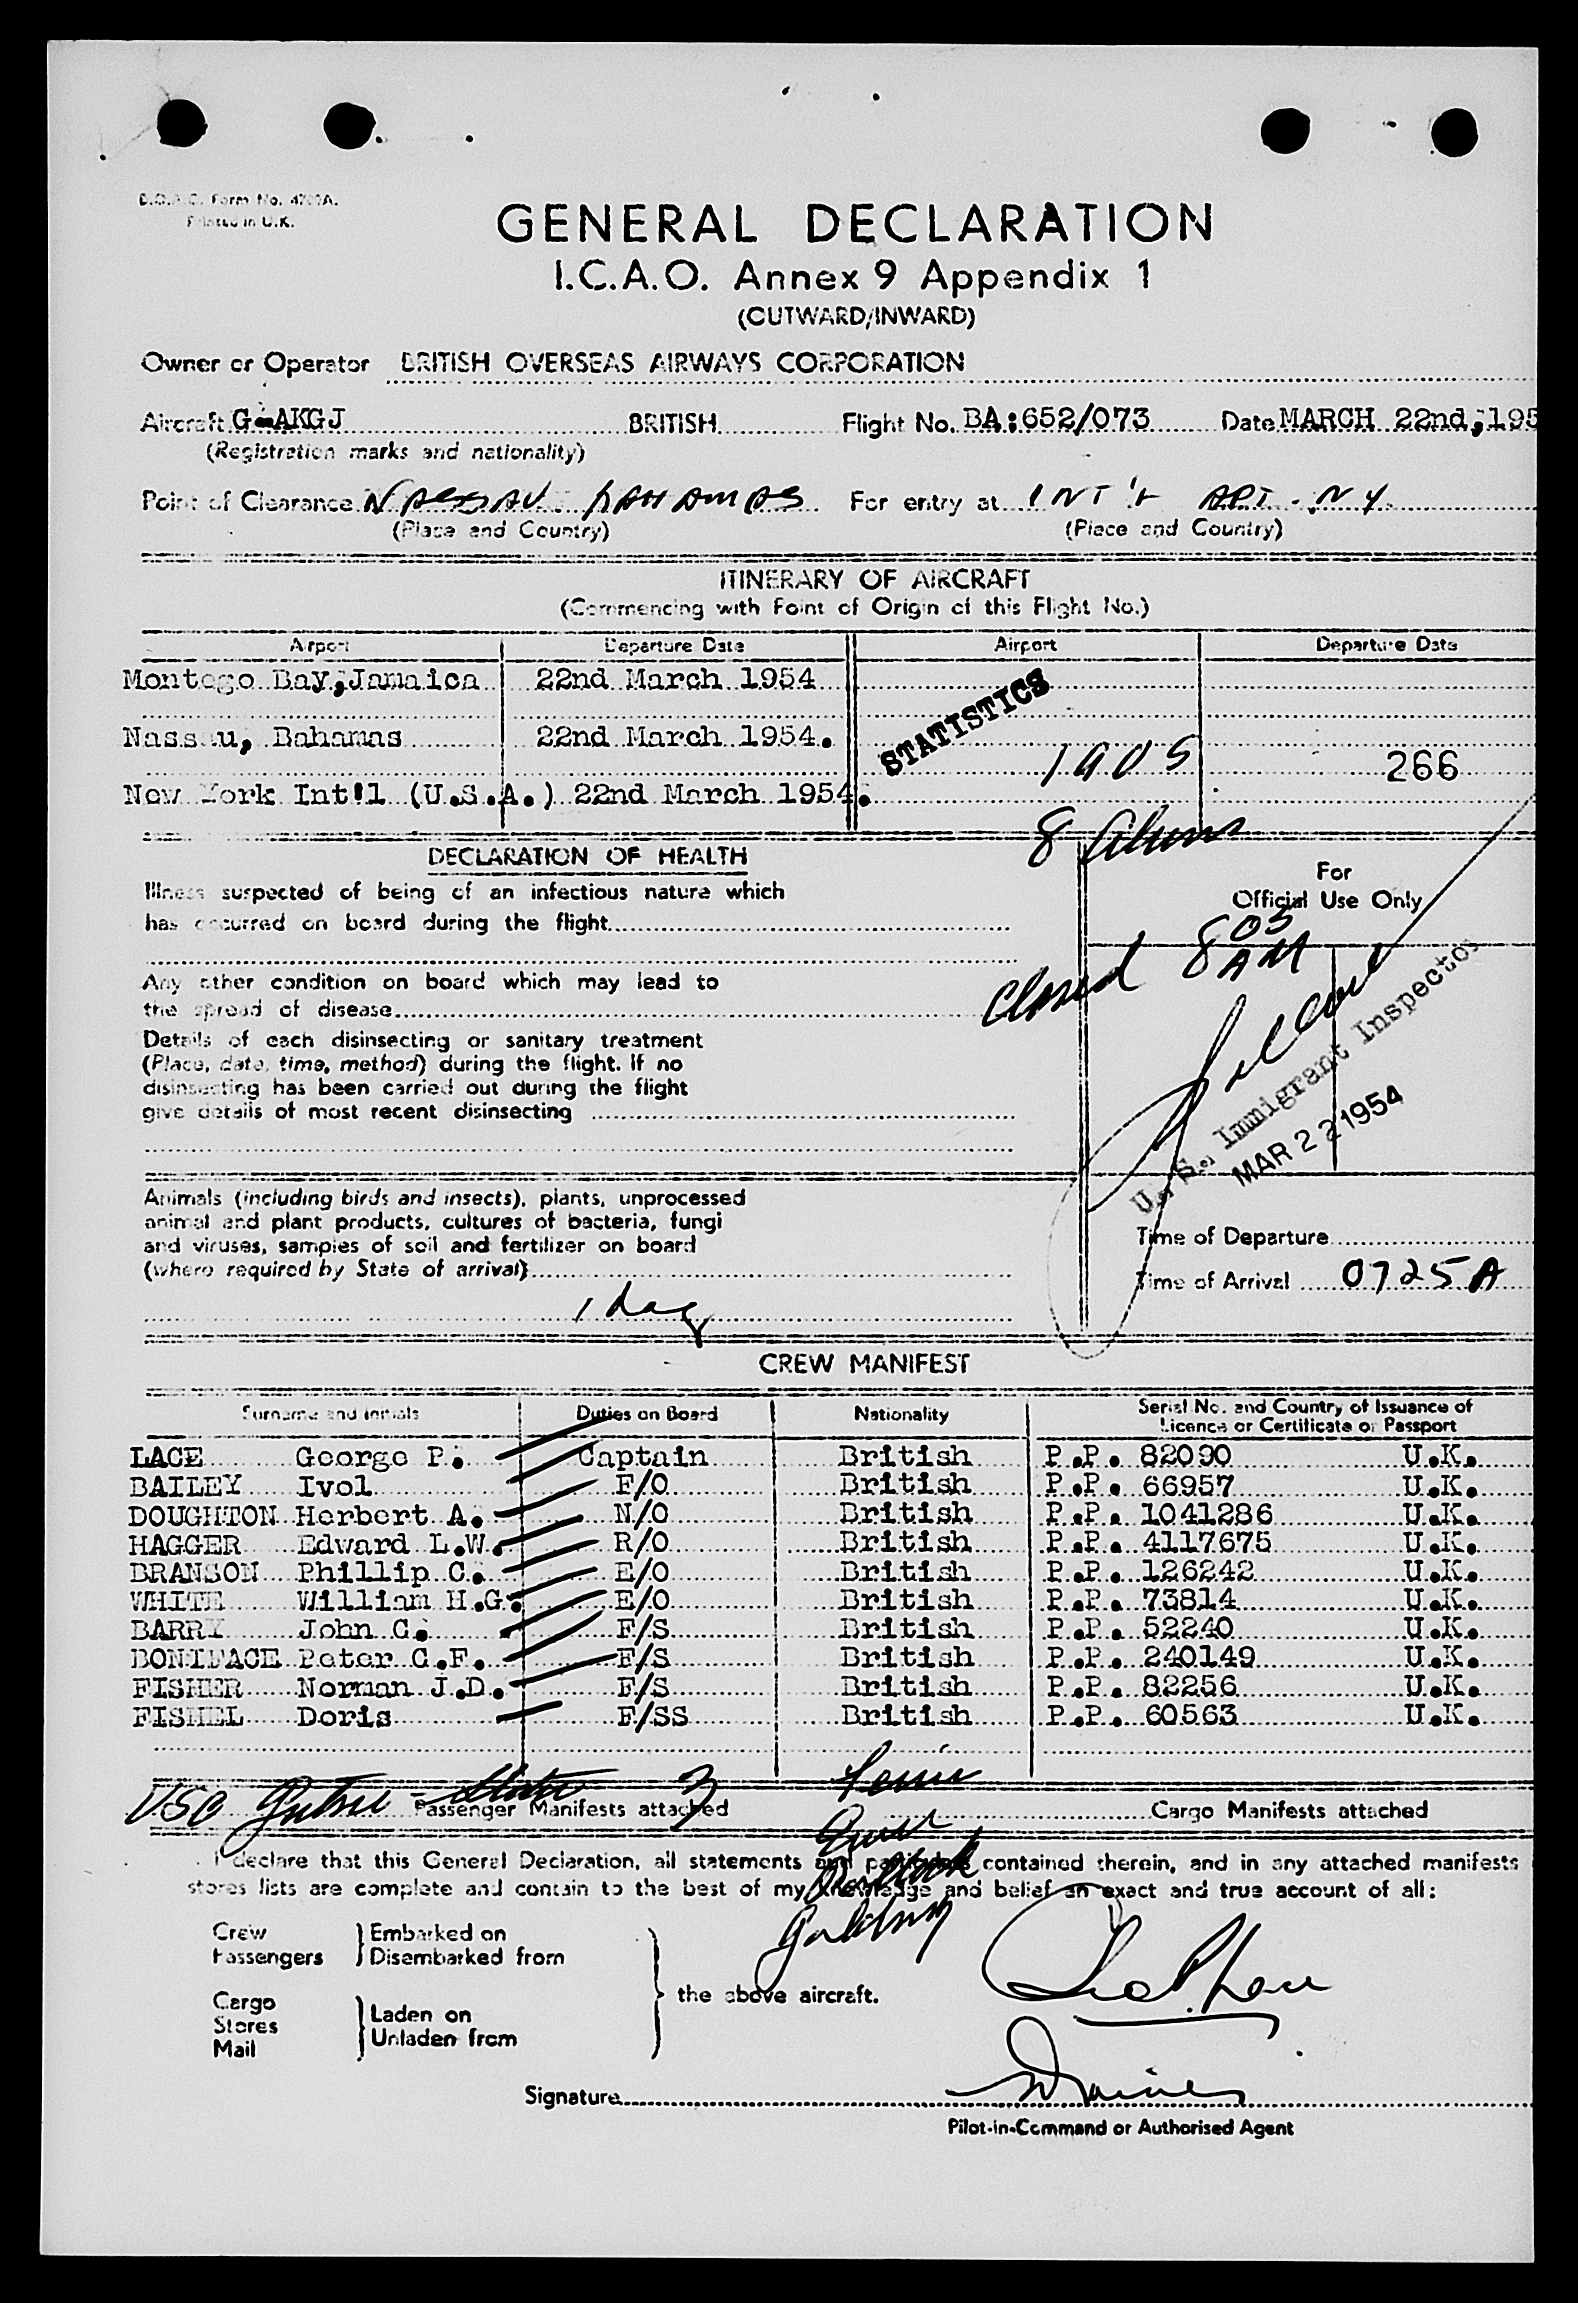 B.O.A.C. Form No.
Printed in U.K.
GENERAL DECLARATION
I.C.A.O. Annex 9 Appendix 1
(OUTWARD/INWARD)
Owner or Operator BRITISH OVERSEAS AIRWAYS CORPORATION
Aircraft G-AKGJ BRITISH Flight No. BA:652/073 Date MARCH 22nd, 195
(Registration marks and nationality)
Point of Clearance NASSAU BAHAMAS For entry at INT'L APT. NY
(Place and Country) (Place and Country)
ITINERARY OF AIRCRAFT
(Commencing with Point of Origin of this Flight No.)
Airport Departure Date Airport Departure Date
Montego Bay, Jamaica 22nd March 1954
STATISTICS
Nassau, Bahamas 22nd March 1954.
1905 266
New York Int'l (U.S.A.) 22nd March 1954.
8 Aliens
DECLARATION OF HEALTH
For
Official Use Only
Illness suspected of being of an infectious nature which
has occurred on board during the flight
closed 8 05 AM
Any other condition on board which may lead to
the spread of disease
Details of each disinsecting or sanitary treatment
(Place, date, time, method) during the flight. If no
disinsecting has been carried out during the flight
give details of most recent disinsecting
U. S. Immigrant Inspector
MAR 22 1954
Animals (including birds and insects), plants, unprocessed
animal and plant products, cultures of bacteria, fungi
and viruses, samples of soil and fertilizer on board
(where required by State of arrival)
Time of Departure
Time of Arrival 0725 A
1 dog
CREW MANIFEST
Surname and Initials Duties on Board Nationality Serial No. and Country of Issuance of
Licence or Certificate or Passport
LACE George P. Captain British P.P. 82090 U.K.
BAILEY Ivol F/O British P.P. 66957 U.K.
DOUGHTON Herbert A. N/O British P.P. 1041286 U.K.
HAGGER Edward L.W. R/O British P.P. 4117675 U.K.
BRANSON Phillip C. E/O British P.P. 126242 U.K.
WHITE William H.G. E/O British P.P. 73814 U.K.
BARRY John C. F/S British P.P. 52240 U.K.
BONIFACE Peter C.F. F/S British P.P. 240149 U.K.
FISHER Norman J.D. F/S British P.P. 82256 U.K.
FISHEL Doris F/SS British P.P. 60563 U.K.
Passenger Manifests attached Cargo Manifests attached
I declare that this General Declaration, all statements and particulars contained therein, and in any attached manifests
stores lists are complete and contain to the best of my knowledge and belief an exact and true account of all:
Crew Embarked on
Passengers Disembarked from
the above aircraft.
Cargo
Stores Laden on
Mail Unladen from
Signature
Pilot-in-Command or Authorised Agent